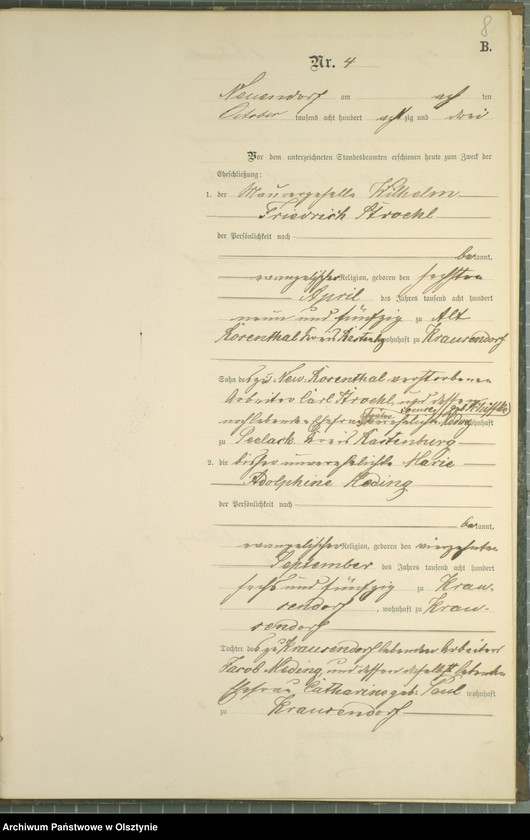 8
B.
Nr. 4
Neuendorf am acht ten
October tausend acht hundert achtzig und drei
Vor dem unterzeichneten Standesbeamten erschienen heute zum Zweck der
Eheschließung:
1. der Maurergeselle Wilhelm
Friedrich Stroehl
der Persönlichkeit nach
bekannt,
evangelischer Religion, geboren den sechsten
April des Jahres tausend acht hundert
neun und fünfzig zu Alt
Rosenthal Kreis Rastenburg wohnhaft zu Krausendorf
Sohn des zu Neu Rosenthal verstorbenen
Arbeiter Carl Stroehl und dessen
noch lebenden Ehefrau geb. wohnhaft
zu Seelack Kreis Rastenburg
2. die bisher unverehelichte Marie
Adolphine Meding
der Persönlichkeit nach
bekannt,
evangelischer Religion, geboren den vierzehnten
September des Jahres tausend acht hundert
sechs und fünfzig zu Krau-
sendorf, wohnhaft zu Krau-
sendorf
Tochter des zu Krausendorf lebenden Arbeiters
Jacob Meding und dessen daselbst lebenden
Ehefrau Catharine geb. Paul wohnhaft
zu Krausendorf
Archiwum Państwowe w Olsztynie